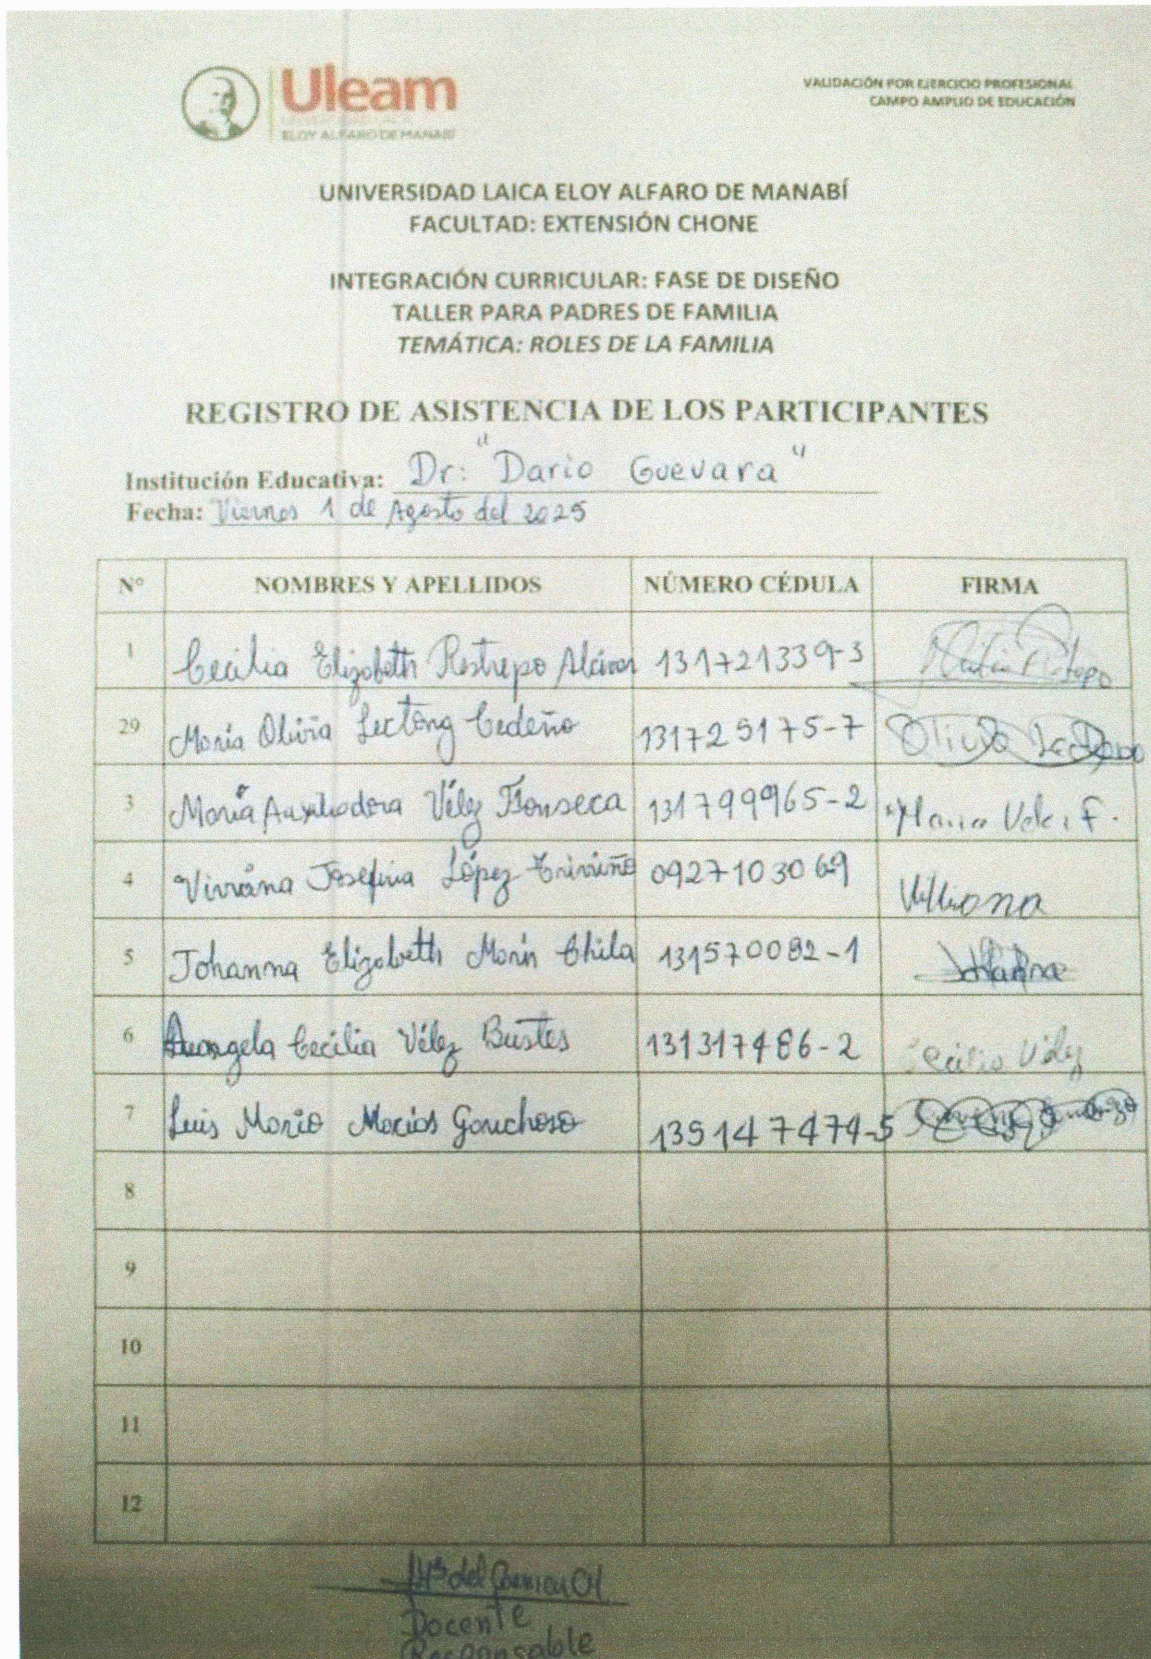 Uleam
UNIVERSIDAD LAICA
ELOY ALFARO DE MANABÍ
VALIDACIÓN POR EJERCICIO PROFESIONAL
CAMPO AMPLIO DE EDUCACIÓN
UNIVERSIDAD LAICA ELOY ALFARO DE MANABÍ
FACULTAD: EXTENSIÓN CHONE
INTEGRACIÓN CURRICULAR: FASE DE DISEÑO
TALLER PARA PADRES DE FAMILIA
TEMÁTICA: ROLES DE LA FAMILIA
REGISTRO DE ASISTENCIA DE LOS PARTICIPANTES
Institución Educativa: Dr: "Dario Guevara"
Fecha: Viernes 1 de Agosto del 2025
N° NOMBRES Y APELLIDOS NÚMERO CÉDULA FIRMA
1 Cecilia Elizabeth Restrepo Alcívar 131721339-3
29 María Olivia Lectong Cedeño 131725175-7 Olivia
3 María Auxiliadora Vélez Fonseca 131799965-2 Maria Velez F.
4 Viviana Josefina López Triviño 0927103069 Viviana
5 Johanna Elizabeth Marín Chila 131570082-1 Johanna
6 Angela Cecilia Vélez Bustes 131317486-2 Cecilia Vélez
7 Luis Mario Macías Ganchoso 135147474-5
8
9
10
11
12
Mª del Carmen
Docente
Responsable